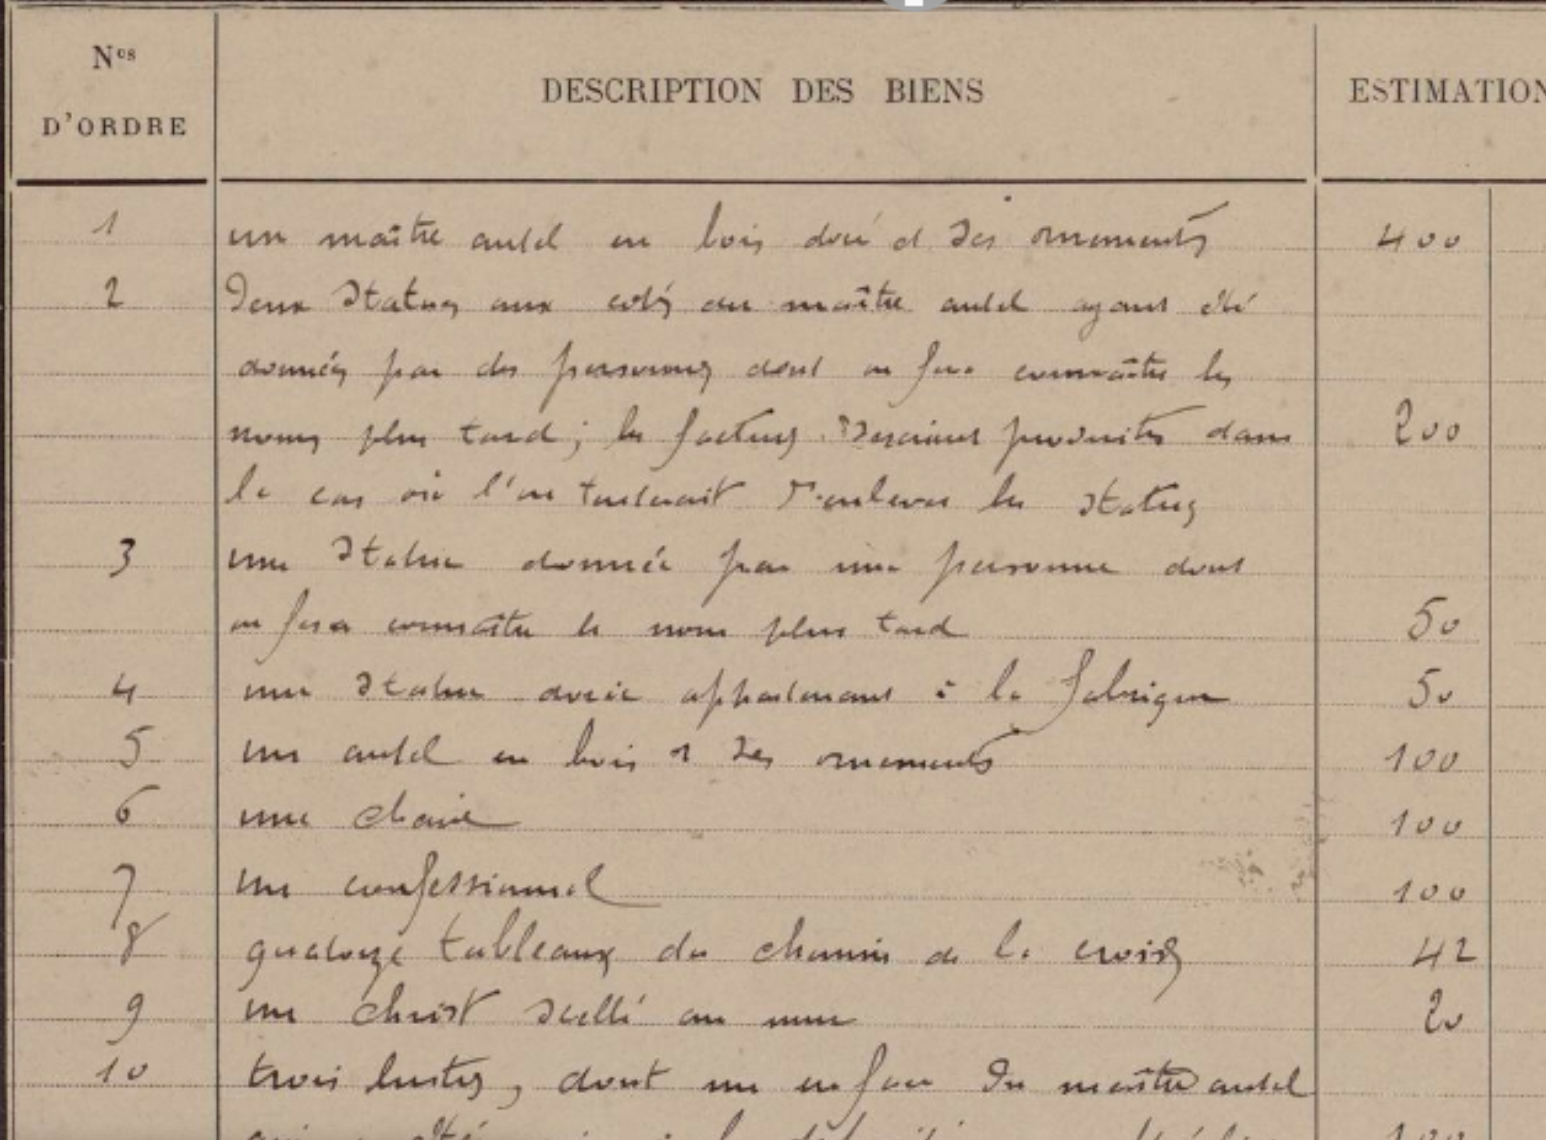 Nos D'ORDRE DESCRIPTION DES BIENS ESTIMATION
1 un maître autel en bois doré et ses ornements 400
2 Deux statues aux cotés du maître autel ayant été
données par des personnes dont on fera connaître les
noms plus tard ; les factures seraient produites dans 200
le cas où l'on d'enlever les statues
3 une statue donnée par une personne dont
on fera connaître le nom plus tard 50
4 une statue dorée appartenant à la fabrique 50
5 un autel en bois et ses ornements 100
6 une chaire 100
7 un confessionnal 100
8 quatorze tableaux du chemin de la croix 42
9 un christ scellé au mur 20
10 trois lustres, dont un en face du maître autel
100